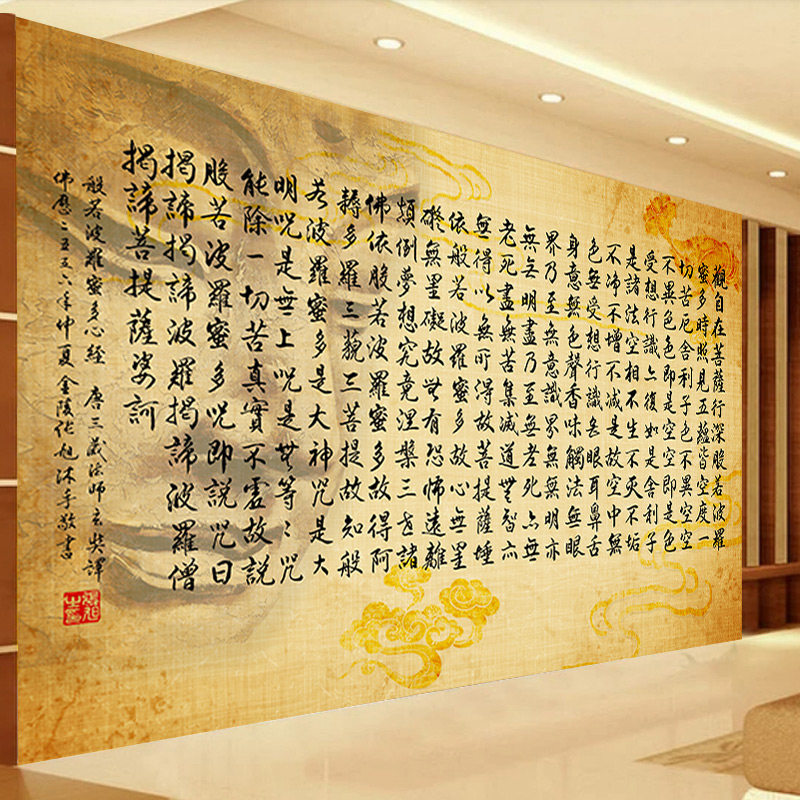 觀自在菩薩行深般若波羅
蜜多時照見五蘊皆空度一
切苦厄舍利子色不異空空
不異色色即是空空即是色
受想行識亦復如是舍利子
是諸法空相不生不滅不垢
不淨不增不減是故空中無
色無受想行識無眼耳鼻舌
身意無色聲香味觸法無眼
界乃至無意識界無無明亦
無無明盡乃至無老死亦無
老死盡無苦集滅道無智亦
無得以無所得故菩提薩埵
依般若波羅蜜多故心無罣
礙無罣礙故無有恐怖遠離
顛倒夢想究竟涅槃三世諸
佛依般若波羅蜜多故得阿
耨多羅三藐三菩提故知般
若波羅蜜多是大神咒是大
明咒是無上咒是無等〻咒
能除一切苦真實不虛故說
般若波羅蜜多咒即說咒曰
揭諦揭諦波羅揭諦波羅僧
揭諦菩提薩婆訶
般若波羅蜜多心經 唐三藏法師玄奘譯
佛歷二五五六年仲夏金陵旭沐手敬書